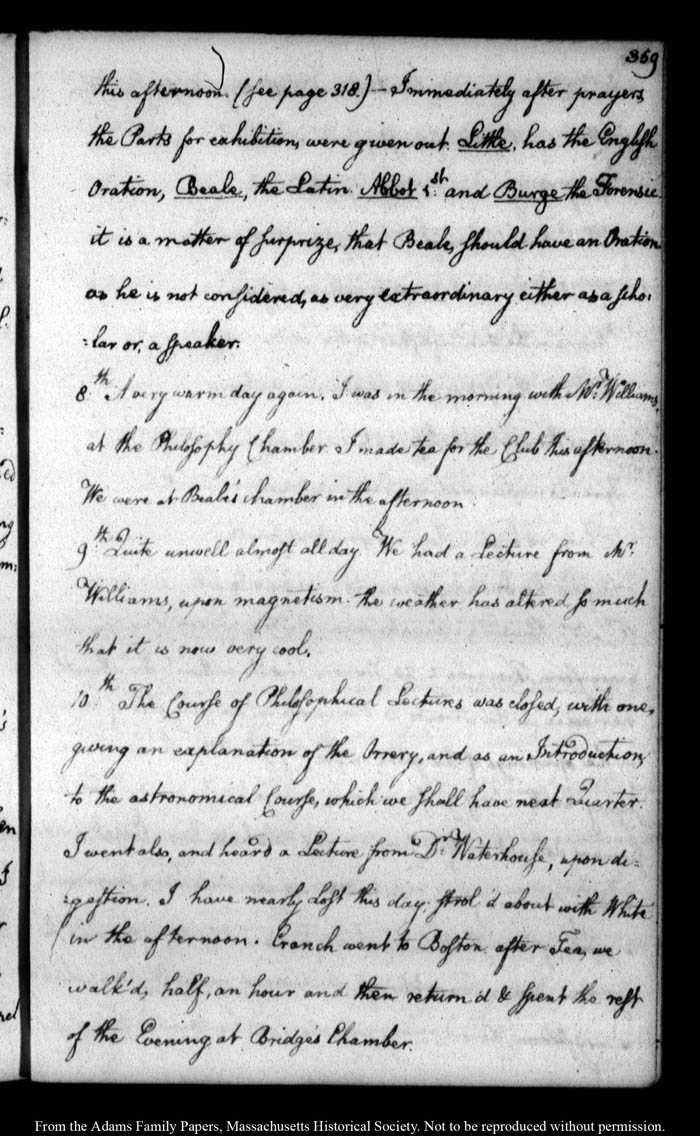 359
this afternoon. (see page 318.) — Immediately after prayers
the Parts for exhibition, were given out. Little, has the English
Oration, Beale, the Latin. Abbot 1st: and Burge the Forensic.
it is a matter of surprize, that Beale, should have an Oration
as he is not considered, as very extraordinary either as a scho:
:lar or, a speaker.
8th. A very warm day again. I was in the morning with Mr. Williams,
at the Philosophy Chamber. I made tea for the Club this afternoon.
We were at Beale's chamber in the afternoon.
9th. Quite unwell almost all day. We had a Lecture from Mr.
Williams, upon magnetism. the weather has altered so much
that it is now very cool.
10th. The Course of Philosophical Lectures was closed, with one,
giving an explanation of the Orrery, and as an Introduction,
to the astronomical Course, which we shall have next Quarter.
I went also, and heard a Lecture from Dr. Waterhouse, upon di:
:gestion. I have nearly lost this day. strol'd about with White
in the afternoon. Cranch went to Boston. after Tea, we
walk'd, half, an hour and then return'd & spent the rest
of the Evening, at Bridge's Chamber.
From the Adams Family Papers, Massachusetts Historical Society. Not to be reproduced without permission.